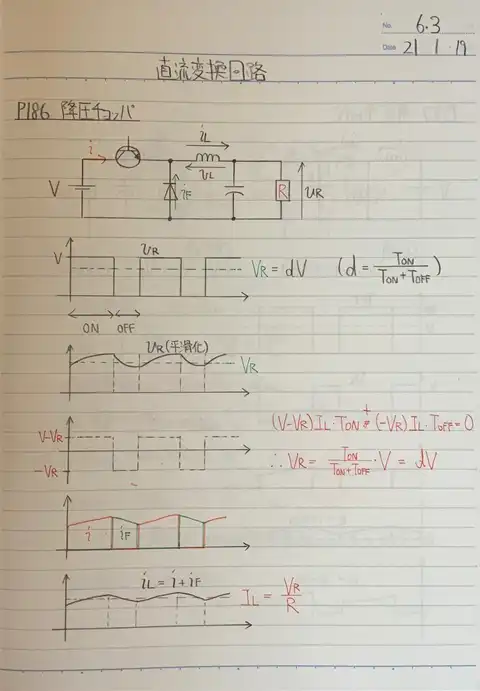 No. 6.3
Date 21・1・19
直流変換回路
P186 降圧チョッパ
i
iL
V
vL
iF
R
vR
V
vR
VR = dV (d = TON / (TON + TOFF))
ON OFF
vR(平滑化)
VR
V-VR
-VR
(V-VR) IL・TON + (-VR) IL・TOFF = 0
∴ VR = TON / (TON + TOFF) ・V = dV
i iF
iL = i + iF
IL = VR / R